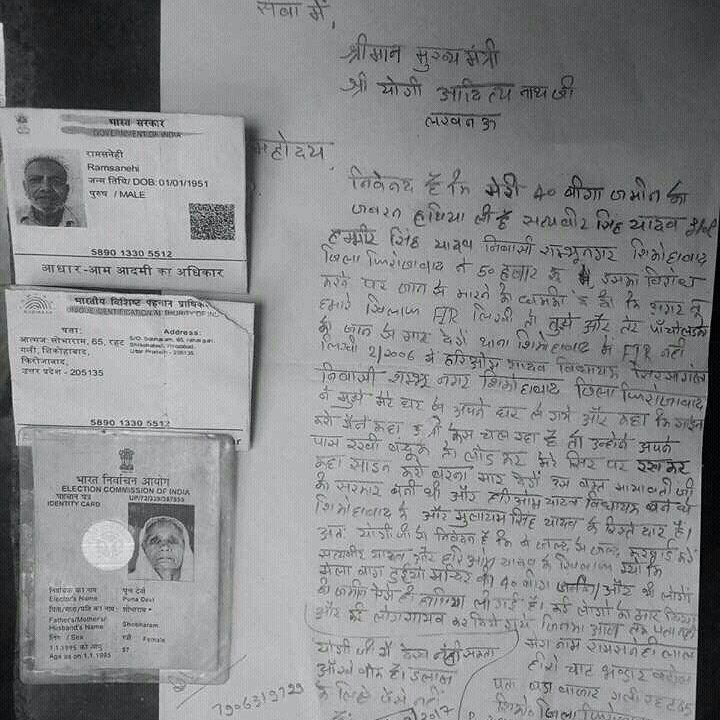 सेवा में,
श्रीमान मुख्य मंत्री
श्री योगी आदित्य नाथ जी
लखनऊ
महोदय,
निवेदन है कि मेरी 40 बीगा जमीन को
जबरन हथिया ली है सत्यवीर सिंह यादव
हम्मीर सिंह यादव निवासी शम्भूनगर शिकोहाबाद
जिला फिरोजाबाद ने 50 हजार रू में, इसका विरोध
करने पर जान से मारने की धमकी दी कि अगर तू
हमारे खिलाफ FIR लिखी तो तुझे और तेरे
को जान से मार देंगे थाना शिकोहाबाद में FIR नहीं
लिखी 2/2006 में हरिओम यादव विधायक सिरसागंज
निवासी शम्भू नगर शिकोहाबाद जिला फिरोजाबाद
ने मुझे मेरे घर से अपने घर ले गये और कहा कि साइन
करो मैंने कहा केस चल रहा है तो उन्होंने अपने
पास रखी बन्दूक को लोड कर मेरे सिर पर रख कर
कहा साइन करो वरना मार देंगे उस वक्त मायावती जी
की सरकार बनी थी और हरीओम यादव विधायक बने थे
शिकोहाबाद के और मुलायम सिंह यादव के रिश्ते दार हैं।
अतः योगी जी से निवेदन है कि वे जल्द से जल्द करें
सत्यवीर यादव और हरिओम यादव के खिलाफ क्यों कि
मेला बाग की 40 बीगा और भी लोगों
की जमीन ऐसी ही हथिया ली गई है। कई लोगों को मार दिया
और कई लोग गायब कर दिये गये जिनका आज तक पता नहीं
योगी जी मैं देख नहीं सकता
आँखें हैं। इलाज
के लिये पैसे नहीं
7906319729
2017
मेरा नाम रामसनेही लाल
चाट भण्डार
पता बड़ा बाजार गली रहट 65
शिको जिला फिरोजा
भारत सरकार
GOVERNMENT OF INDIA
रामसनेही
Ramsanehi
जन्म तिथि/ DOB: 01/01/1951
पुरुष / MALE
5890 1330 5512
आधार-आम आदमी का अधिकार
भारतीय विशिष्ट पहचान प्राधिक
UNIQUE IDENTIFICATION AUTHORITY OF IN
पता:
आत्मज सोभाराम, 65, रहट
गली, शिकोहाबाद,
फिरोजाबाद,
उत्तर प्रदेश - 205135
Address:
S/O: Sobharam, 65, rahat gali,
Shikohabad, Firozabad,
Uttar Pradesh - 205135
5890 1330 5512
भारत निर्वाचन आयोग
ELECTION COMMISSION OF INDIA
पहचान पत्र
IDENTITY CARD
निर्वाचक का नाम : पूना देवी
Elector's Name : Puna Devi
पिता/माता/पति का नाम : शोभाराम
Father's/Mother's/
Husband's Name : Shobharam
लिंग / Sex : स्त्री Female
1.1.1995 को आयु : 57
Age as on 1.1.1995